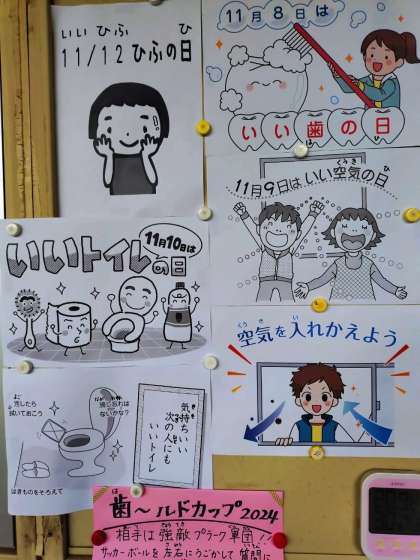 いいひふ ひ
11/12 ひふの日
11月8日は
いい歯の日
は
くうき ひ
11月9日はいい空気の日
11月10日は
いいトイレの日
くうき い
空気を入れかえよう
よごしたら
拭いておこう
閉じ忘れは
ないかな?
はきものをそろえて
気持ちいい
次の人にも
いいトイレ
は
歯〜ルドカップ2024
相手は強敵プラーク軍団!!
サッカーボールを左右にうごかして 質問に